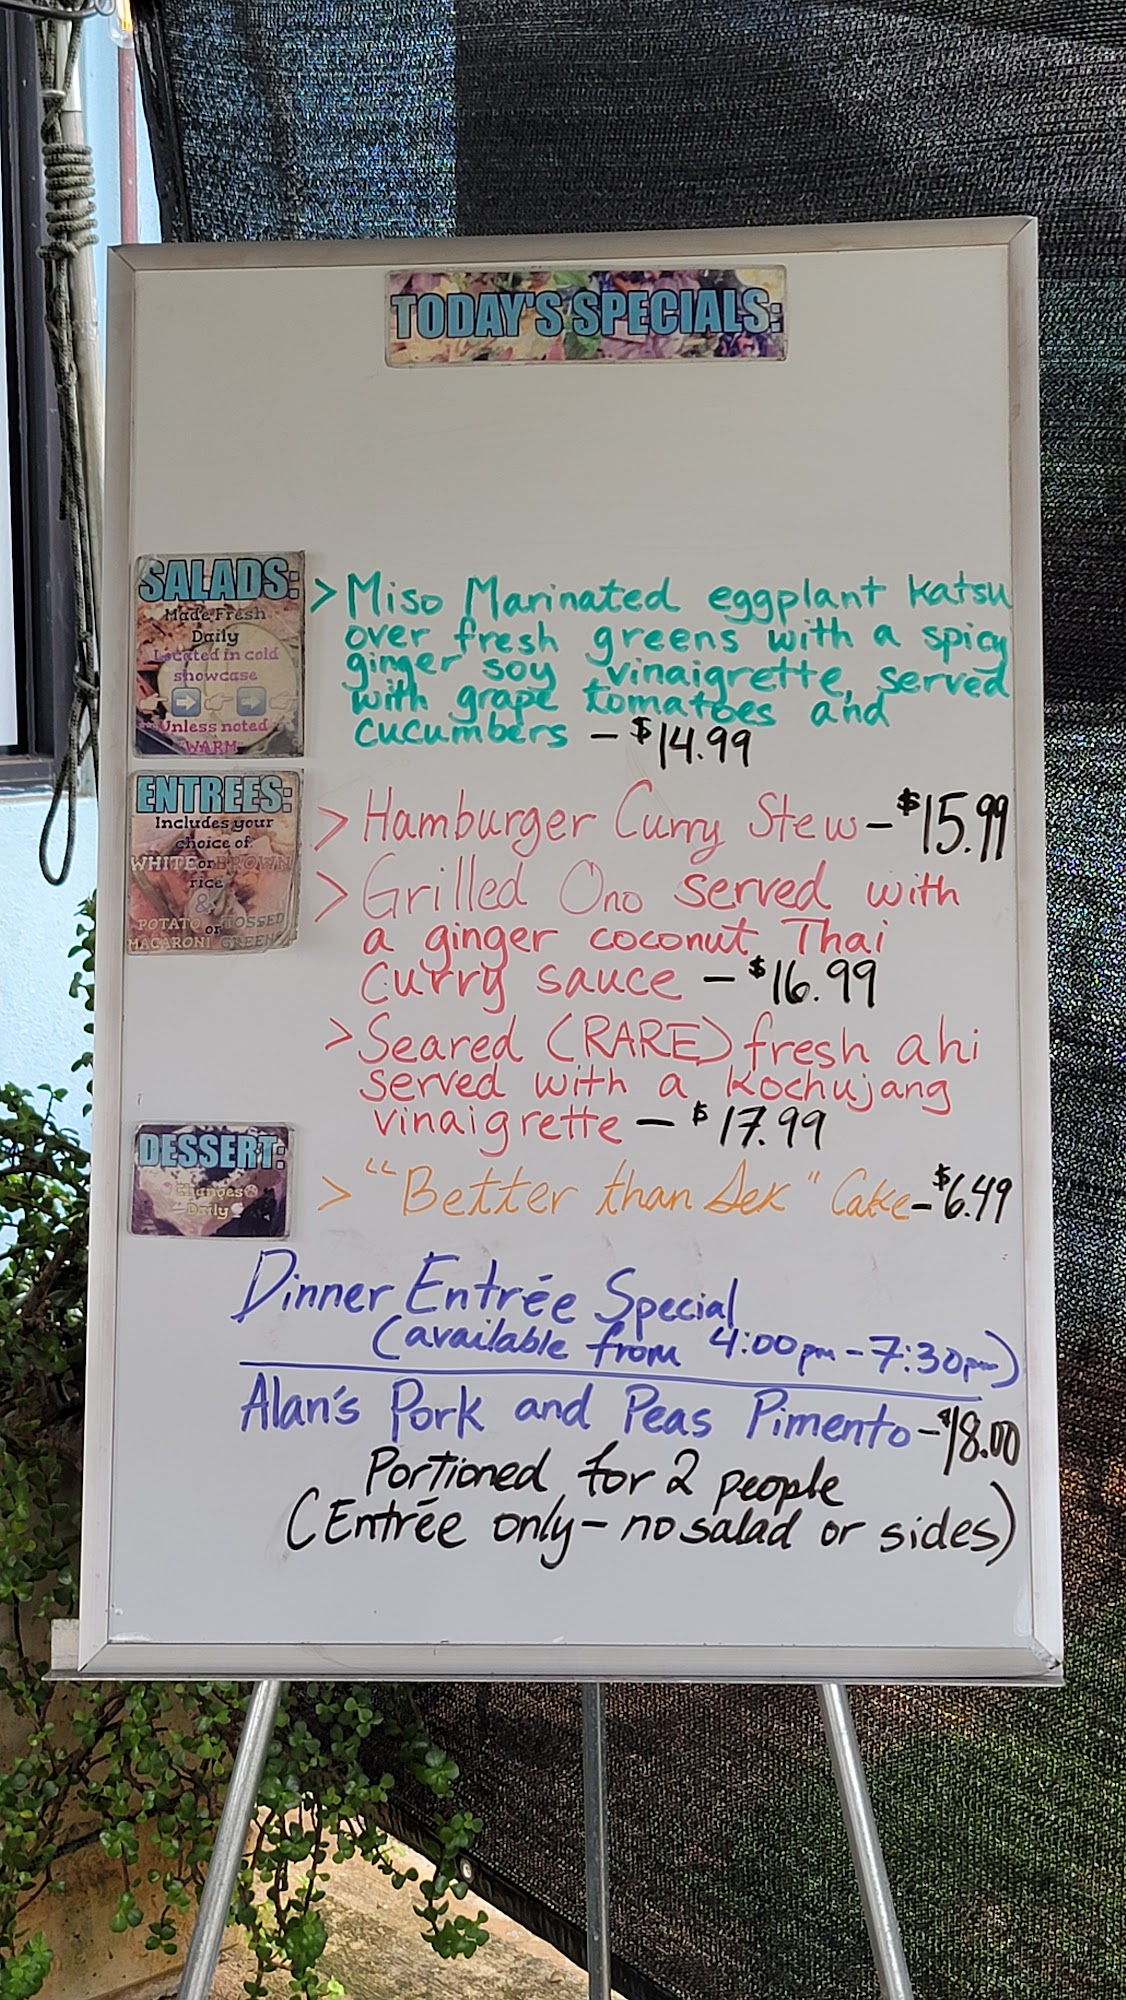 TODAY'S SPECIALS:
SALADS:
Made Fresh
Daily
Located in cold
showcase
Unless noted
"WARM"
> Miso Marinated eggplant katsu
over fresh greens with a spicy
ginger soy vinaigrette, served
with grape tomatoes and
cucumbers - $14.99
ENTREES:
Includes your
choice of:
WHITE or BROWN
rice
&
POTATO or TOSSED
MACARONI GREENS
> Hamburger Curry Stew - $15.99
> Grilled Ono served with
a ginger coconut Thai
Curry sauce - $16.99
> Seared (RARE) fresh ahi
served with a Kochujang
vinaigrette - $17.99
DESSERT:
Changes
Daily
> "Better than Sex" Cake - $6.49
Dinner Entrée Special
(available from 4:00pm - 7:30pm)
Alan's Pork and Peas Pimento - $18.00
Portioned for 2 people
(Entrée only - no salad or sides)